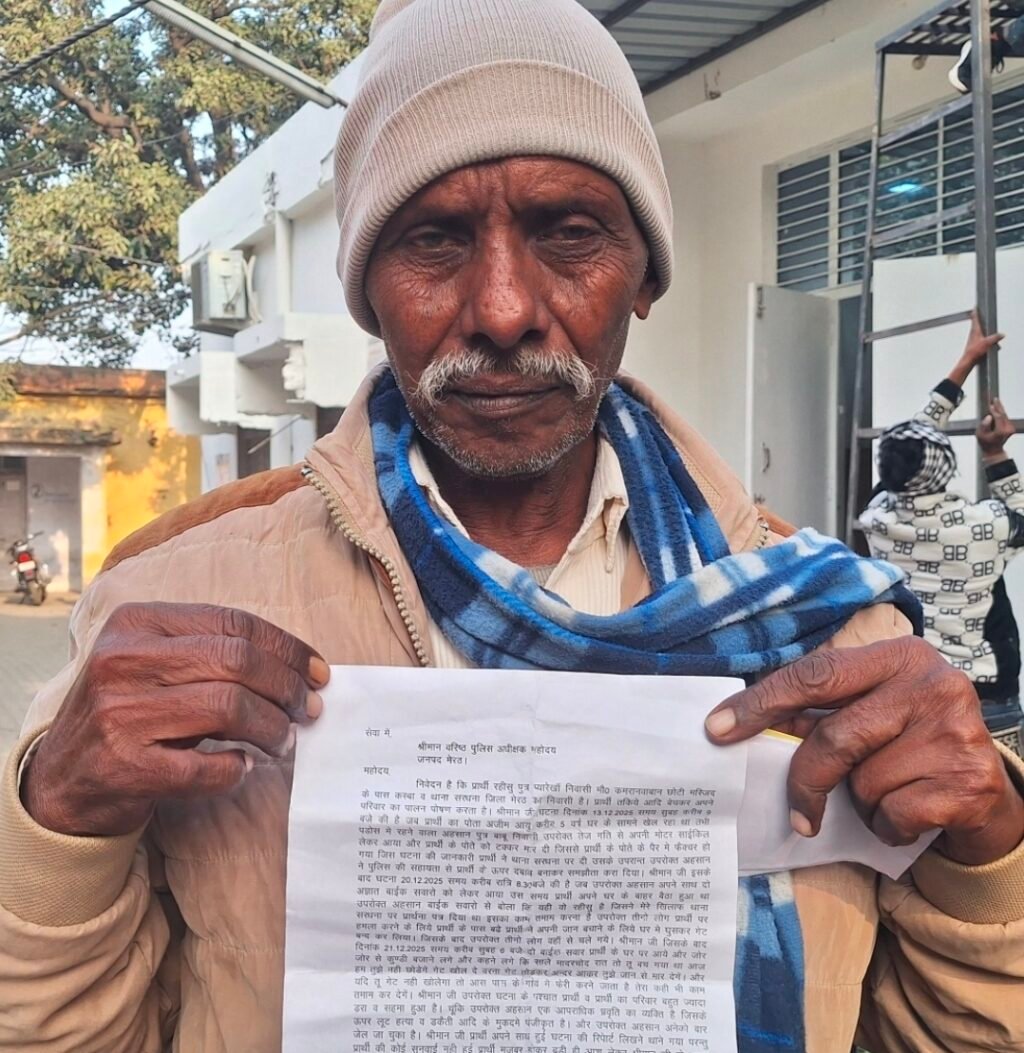 सेवा में,
श्रीमान वरिष्ठ पुलिस अधीक्षक महोदय
जनपद मेरठ।
महोदय,
निवेदन है कि प्रार्थी रहीसु पुत्र प्यारेखाँ निवासी मौ0 कमरानवाबान छोटी मस्जिद
के पास कस्बा व थाना सरधना जिला मेरठ का निवासी है। प्रार्थी तकिये आदि बेचकर अपने
परिवार का पालन पोषण करता है। श्रीमान जी घटना दिनांक 13.12.2025 समय सुबह करीब 9
बजे की है जब प्रार्थी का पोता अजीम आयु करीब 5 वर्ष घर के सामने खेल रहा था तभी
पडोस मे रहने वाला अहसान पुत्र बाबू निवासी उपरोक्त तेज गति से अपनी मोटर साईकिल
लेकर आया और प्रार्थी के पोते को टक्कर मार दी जिससे प्रार्थी के पोते के पैर मे फैक्चर हो
गया जिस घटना की जानकारी प्रार्थी ने थाना सरधना पर दी उसके उपरान्त उपरोक्त अहसान
ने पुलिस की सहायता से प्रार्थी के ऊपर दबाव बनाकर समझौता करा दिया। श्रीमान जी इसके
बाद घटना 20.12.2025 समय करीब रात्रि 8.30बजे की है जब उपरोक्त अहसान अपने साथ दो
अज्ञात बाईक सवारो को लेकर आया उस समय प्रार्थी अपने घर के बाहर बैठा हुआ था
उपरोक्त अहसान बाईक सवारो से बोला कि यही वो रहीसु है जिसने मेरे खिलाफ थाना
सरधना पर प्रार्थना पत्र दिया था इसका काम तमाम करना है उपरोक्त तीनो लोग प्रार्थी पर
हमला करने के लिये प्रार्थी के पास बढे प्रार्थी ने अपनी जान बचाने के लिये घर मे घुसकर गेट
बन्द कर लिया। जिसके बाद उपरोक्त तीनो लोग वहाँ से चले गये। श्रीमान जी जिसके बाद
दिनांक 21.12.2025 समय करीब सुबह 6 बजे दो बाईक सवार प्रार्थी के घर पर आये और जोर
जोर से कुण्डी बजाने लगे और कहने लगे कि साले मादरचोद रात तो तू बच गया था आज
हम तुझे नही छोडेगें गेट खोल दे वरना गेट तोडकर अन्दर आकर तुझे जान से मार देगें। और
यदि तू गेट नही खोलेगा तो आस पास के गाँव मे फेरी करने जाता है तेरा कही भी काम
तमाम कर देगें। श्रीमान जी उपरोक्त घटना के पश्चात प्रार्थी व प्रार्थी का परिवार बहुत ज्यादा
डरा व सहमा हुआ है। चूंकि उपरोक्त अहसान एक आपराधिक प्रवृति का व्यक्ति है जिसके
ऊपर लूट हत्या व डकैती आदि के मुकदमे पंजीकृत है। और उपरोक्त अहसान अनेको बार
जेल जा चुका है। श्रीमान जी प्रार्थी अपने साथ हुई घटना की रिपोर्ट लिखाने थाने गया परन्तु
प्रार्थी की कोई सुनवाई नही हुई प्रार्थी मजबूर होकर बडी ही आशा लेकर श्रीमान जी